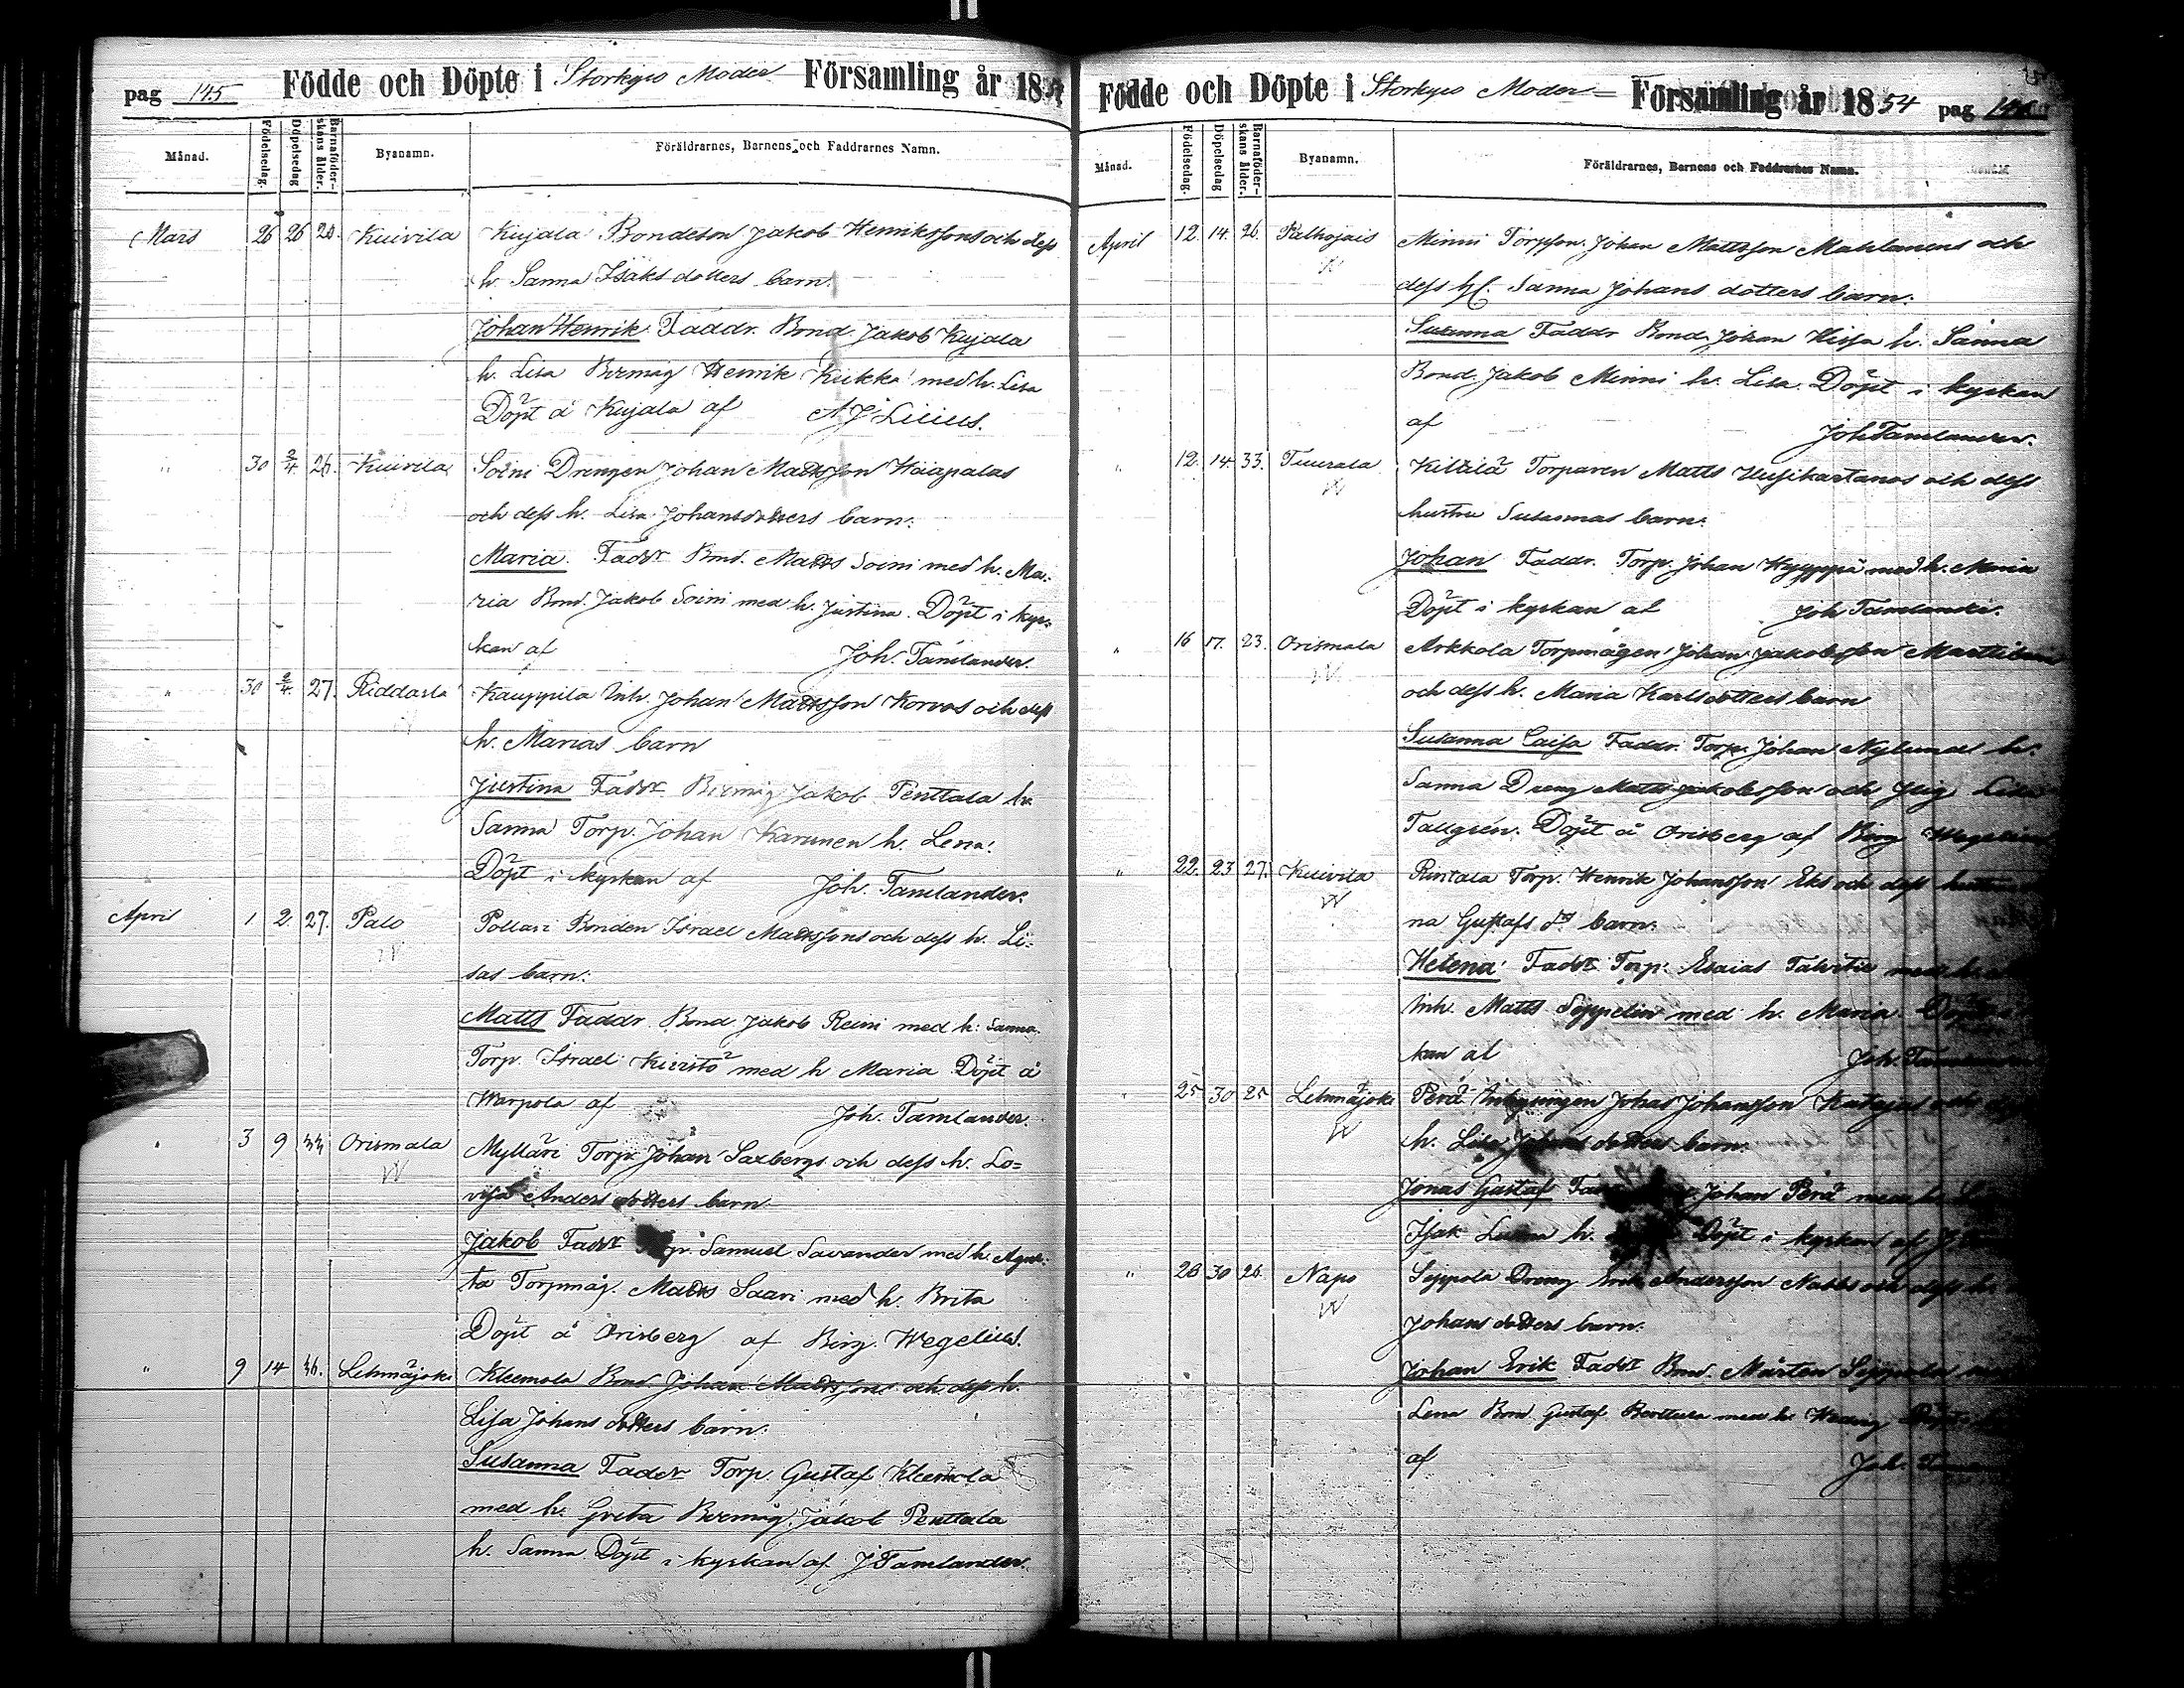 pag 145 Födde och Döpte i Storkyro Moder Församling år 1854
Månad. Födelsedag. Döpelsedag Barnaföderskans ålder. Byanamn. Föräldrarnes, Barnens och Faddrarnes Namn.
Mars 26 26 20. Kuivila Kujala Bondeson Jakob Henrikssons och dess
h. Sanna Isaks dotters barn.
Johan Henrik Faddr. Bond Jakob Kujala
h. Lisa Bermåg Henrik Kukka med h. Lisa
Döpt å Kujala af A J Lilius.
" 30 2/4 26. Kuivila Soini Drengen Johan Mattsson Hääpalas
och dess h. Lisa Johansdotters barn.
Maria. Faddr Bond. Matts Soini med h. Ma-
ria Bond. Jakob Soini med h. Justina. Döpt i kyr-
kan af Joh. Tamlander.
" 30 2/4. 27. Riddarla Kauppila Inh. Johan Mattsson Korvas och dess
h. Marias barn
Justina Faddr. Bermåg Jakob Penttala h.
Sanna Torp. Johan Karunen h. Lena.
Döpt i kyrkan af Joh. Tamlander.
April 1 2. 27. Palo Pollari Bonden Israel Mattssons och dess h. Li-
W
sas barn.
Matts Faddr. Bond Jakob Reini med h. Sanna
Torp. Israel Kiviistö med h Maria Döpt å
Warpola af Joh. Tamlander.
" 3 9 44 Orismala Mylläri Torp. Johan Saxbergs och dess h. Lo-
W
visa Anders dotters barn
Jakob Faddr Torp. Samuel Savander med h. Agne-
ta Torpmåg. Matts Saari med h. Brita
Döpt å Orisberg af Birg. Wegelius.
" 9 14 36. Lehmäjoki Kleemola Bond Johan Mattssons och dess h.
Lisa Johans dotters barn.
Susanna Faddr Torp. Gustaf Kleemola
med h. Greta Bermåg. Jakob Penttala
h. Sanna Döpt i kyrkan af J Tamlander.
Födde och Döpte i Storkyro Moder Församling år 1854 pag 146
Månad. Födelsedag. Döpelsedag Barnaföderskans ålder. Byanamn. Föräldrarnes, Barnens och Faddrarnes Namn.
April 12. 14. 26. Palhojais Minni Torpson. Johan Mattsson Mahlamens och
W
dess h. Sanna Johans dotters barn.
Susanna Faddr Bond. Johan Hissa h. Sanna
Bond. Jakob Minni h. Lisa. Döpt i kyrkan
af Joh Tamlander.
" 12. 14. 33. Tuurala Kiltilä Torparen Matts Uusikartanos och dess
W
hustru Susannas barn.
Johan Faddr. Torp. Johan Kyyppä med h. Maria
Döpt i kyrkan af Joh Tamlander.
" 16 17. 23. Orismala Arkkola Torpmågen Johan Jakobsson
W
och dess h. Maria Karlsdotters barn
Susanna Caisa Faddr. Torp. Johan Nylund h.
Sanna Dreng Matts Jakobsson och Lisa
Tallgrén. Döpt å Orisberg af Birg Wegelius
" 22. 23 27. Kuivila Rintala Torp. Henrik Johansson Eks och dess hustru
W
na Gustafs dr barn.
Helena Faddr Torp. Esaias Talvitie med h.
Inh. Matts Seppelin med h. Maria Döpt i
kan af Joh. Tamlander
" 25 30 25 Lehmäjoki Perä Johan Johansson och
W
h. Lisa Johans dotters barn.
Jonas Gustaf Johan Perä med h.
Isak h. Döpt i kyrkan af J.
" 28 30 26. Napo Seppola Dreng Erik Andersson Nabbs och dess h.
W
Johans dotters barn.
Johan Erik Faddr Bond. Mårten Seppala
Lena Bond. Gustaf Berttula med h. Hedvig Döpt
af Joh.